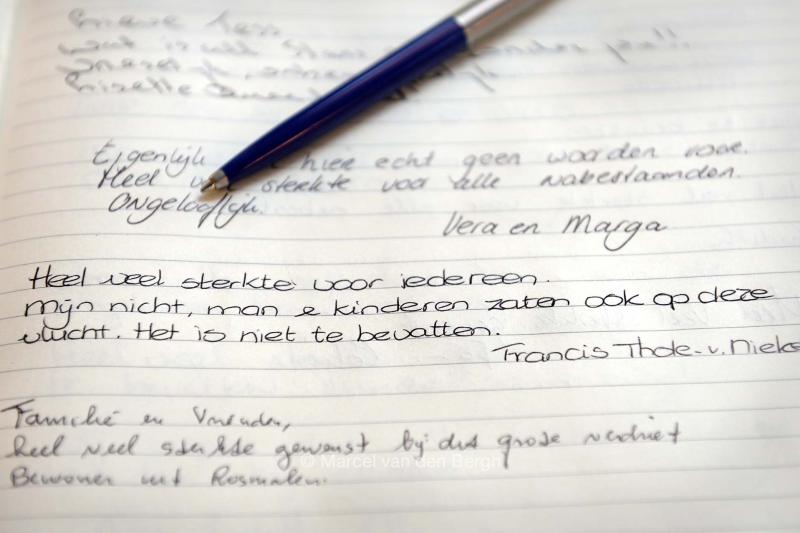 Eigenlijk hier echt geen woorden voor.
Heel veel sterkte voor alle nabestaanden.
Ongelooflijk.
Vera en Marga
Heel veel sterkte voor iedereen.
Mijn nicht, man e kinderen zaten ook op deze
vlucht. Het is niet te bevatten.
Francis Thole-v. Niels
Familie en Vrienden,
heel veel sterkte gewenst bij dit grote verdriet
© Marcel van den Bergh
Bewoner uit Rosmalen.